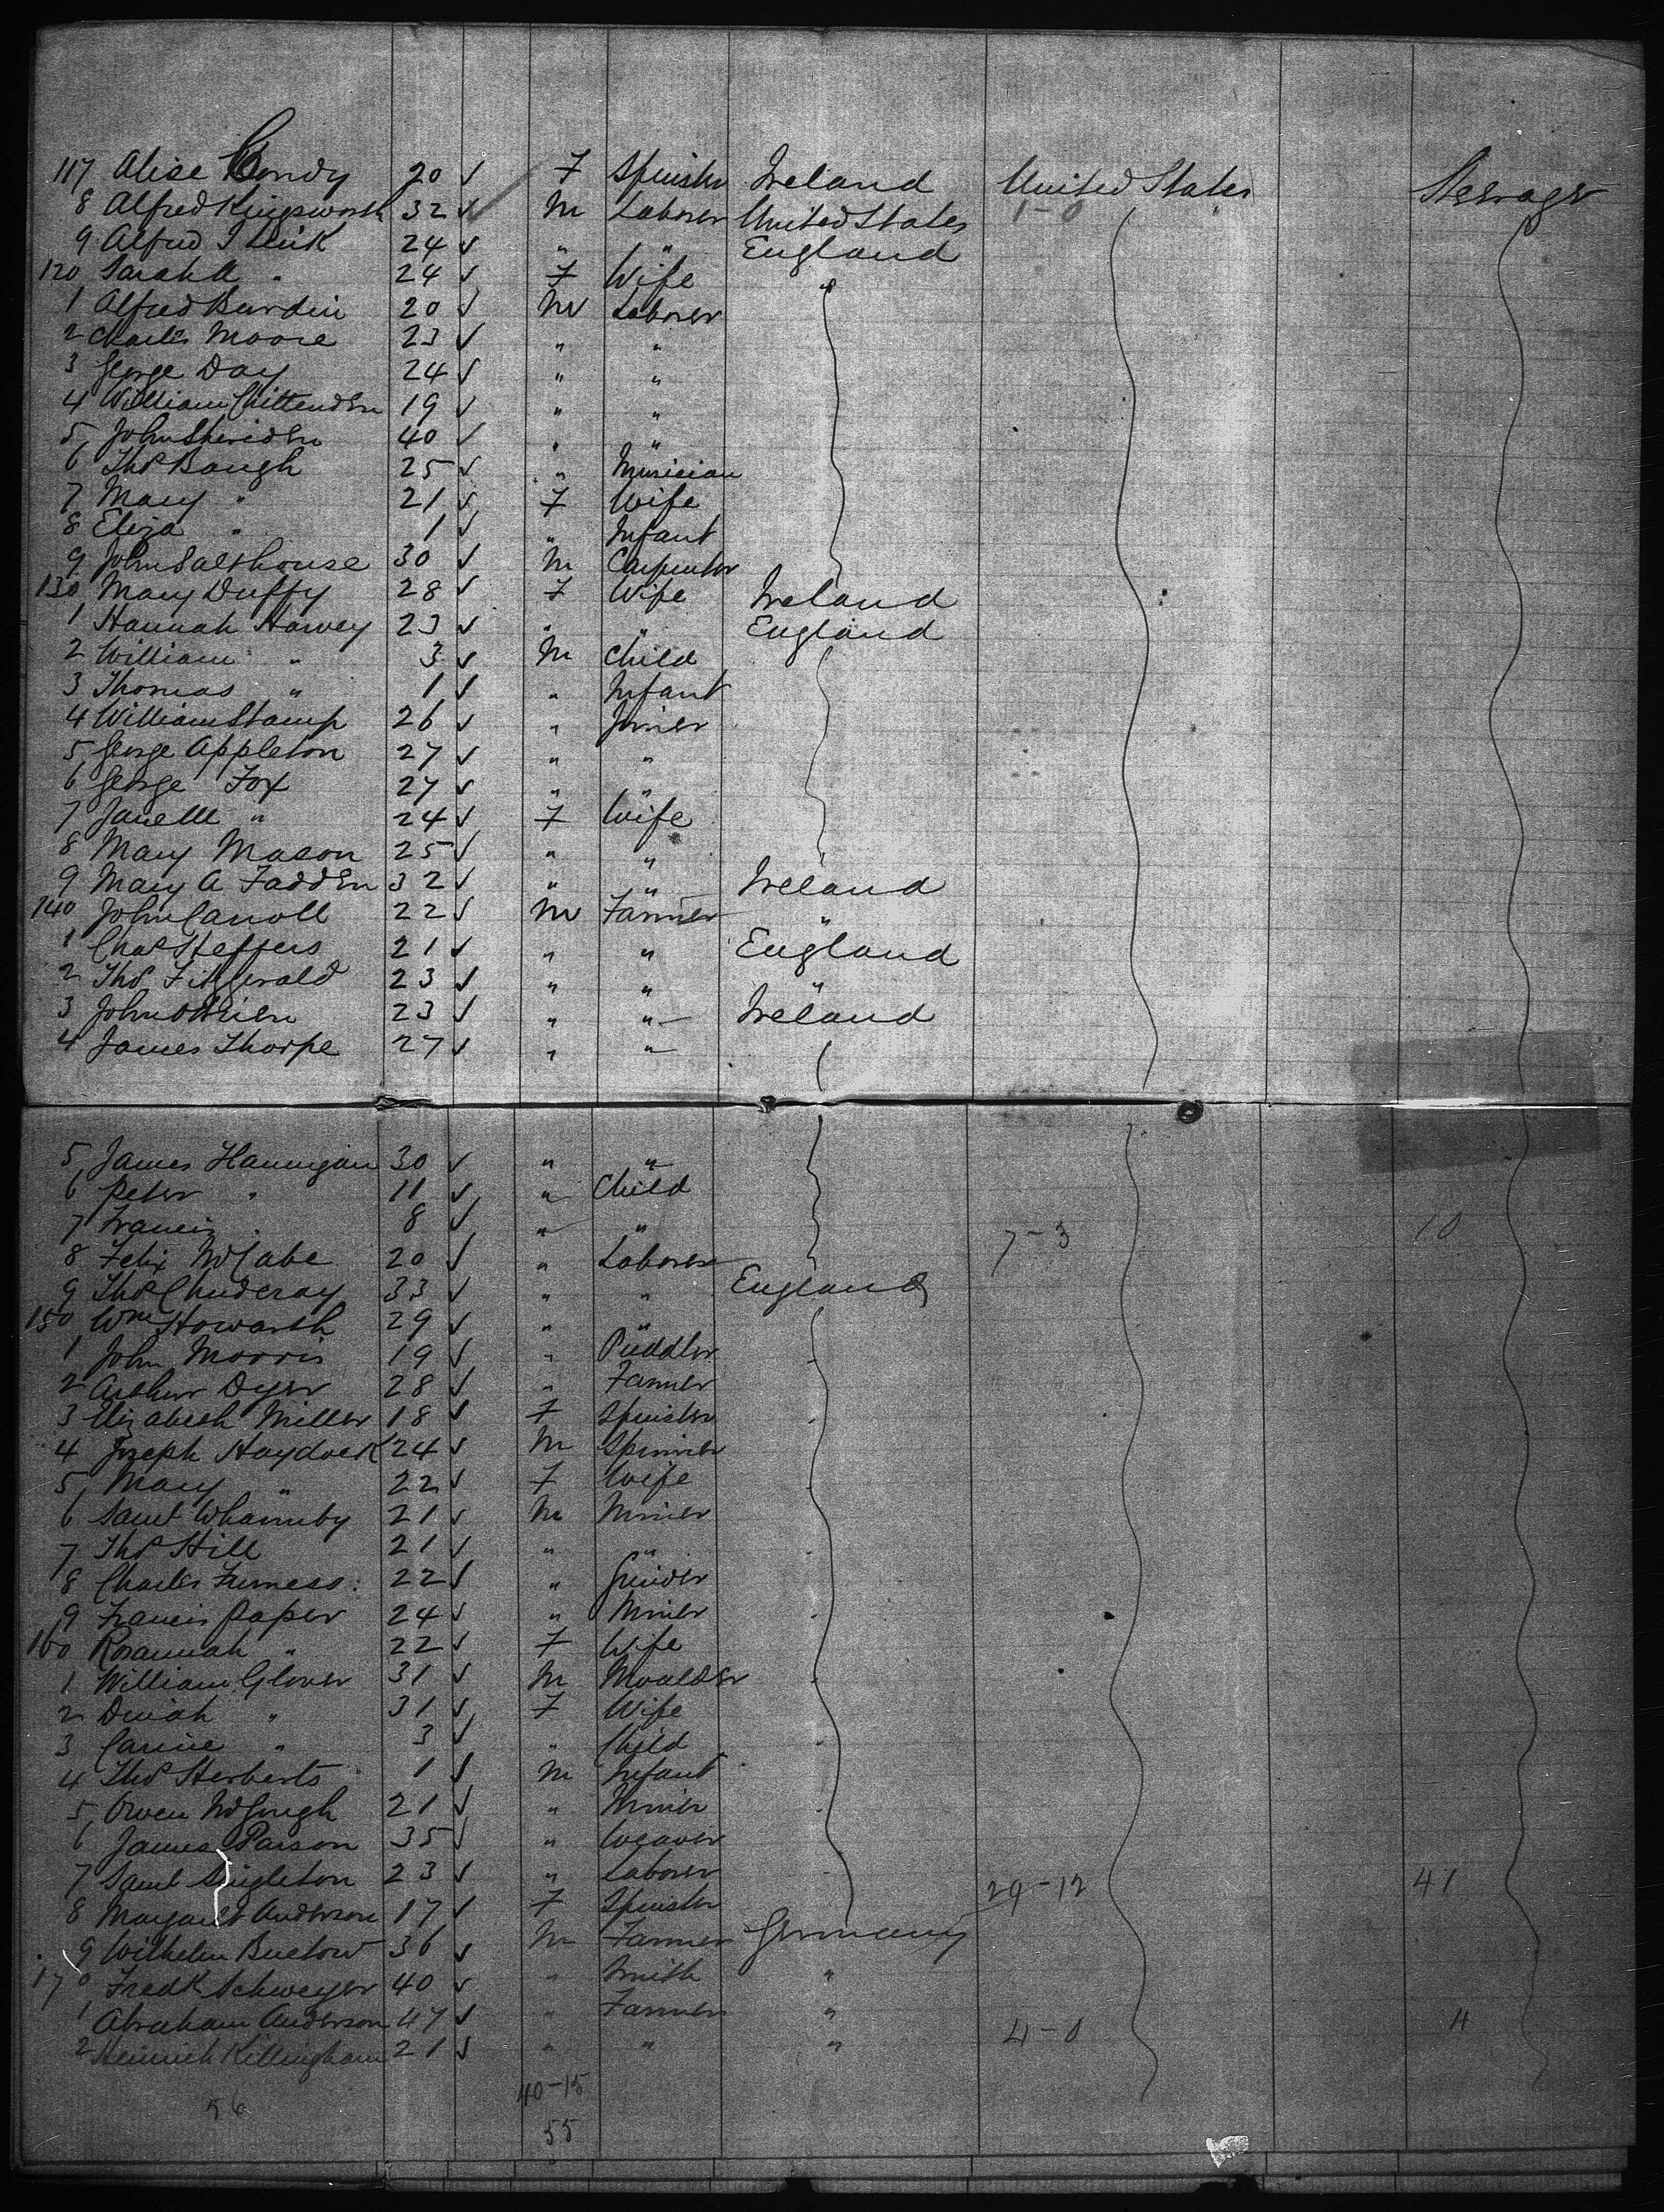 117 Alice Condy 20 ✓ F Spinster Ireland United States Steerage
8 Alfred Kingsworth 32 ✓ M Laborer United States 1-0
9 Alfred J 24 ✓ " " England
120 Sarah A " 24 ✓ F Wife "
1 Alfred Burdin 20 ✓ M Laborer
2 Charles Moore 23 ✓ " "
3 George Day 24 ✓ " "
4 William Chittenden 19 ✓ " "
5 John Sheriden 40 ✓ " "
6 Thos Baugh 25 ✓ " Musician
7 Mary " 21 ✓ F Wife
8 Eliza " 1 ✓ " Infant
9 John Salthouse 30 ✓ M Carpenter
130 Mary Duffy 28 ✓ F Wife Ireland
1 Hannah Harvey 23 ✓ " " England
2 William " 3 ✓ M Child
3 Thomas " 1 ✓ " Infant
4 William Stamp 26 ✓ " Joiner
5 George Appleton 27 ✓ " "
6 George Fox 27 ✓ " "
7 Jane M " 24 ✓ F Wife
8 Mary Mason 25 ✓ " "
9 Mary A Fadden 32 ✓ " " Ireland
140 John Carroll 22 ✓ M Farmer "
1 Chas Steffers 21 ✓ " " England
2 Thos Fitzgerald 23 ✓ " " "
3 John OBrien 23 ✓ " " Ireland
4 James Thorpe 27 ✓ " "
5 James Hannigan 30 ✓ " "
6 Peter " 11 ✓ " Child
7 Francis " 8 ✓ " " 7-3 10
8 Felix McCabe 20 ✓ " Laborer
9 Thos 33 ✓ " " England
150 Wm Howarth 29 ✓ " "
1 John Morris 19 ✓ " Puddler
2 Arthur Dyer 28 ✓ " Farmer
3 Elizabeth Miller 18 ✓ F Spinster
4 Joseph Haydock 24 ✓ M Spinner
5 Mary " 22 ✓ F Wife
6 Saml Wharmby 21 ✓ M Miner
7 Thos Hill 21 ✓ " "
8 Charles Furness 22 ✓ " Grinder
9 Francis Raper 24 ✓ " Miner
160 Rosannah " 22 ✓ F Wife
1 William Glover 31 ✓ M Moulder
2 Dinah " 31 ✓ F Wife
3 Carine " 3 ✓ " Child
4 Thos Herberts 1 ✓ M Infant
5 Owen McGough 21 ✓ " Miner
6 James Parson 35 ✓ " Weaver
7 Saml Singleton 23 ✓ " Laborer 29-12 41
8 Margaret Anderson 17 ✓ F Spinster
9 Wilhelm Buetow 36 ✓ M Farmer Germany
170 Fredk Schweyer 40 ✓ " Smith "
1 Abraham Anderson 47 ✓ " Farmer "
2 Heinrich Killingham 21 ✓ " " " 4-0 4
56 40-15
55